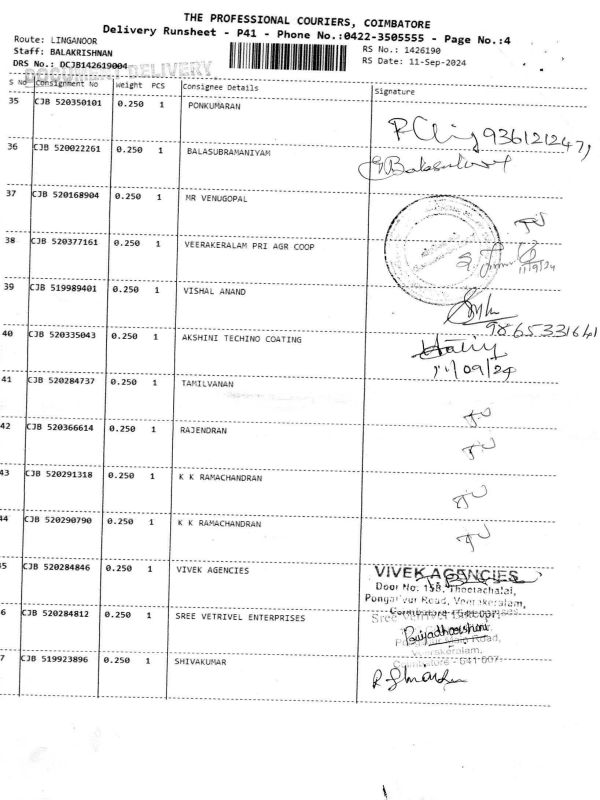 THE PROFESSIONAL COURIERS, COIMBATORE
Delivery Runsheet - P41 - Phone No.:0422-3505555 - Page No.:4
Route: LINGANOOR
Staff: BALAKRISHNAN
DRS No.: DCJB142619004
RS No.: 1426190
RS Date: 11-Sep-2024
DOCUMENT DELIVERY
S No Consignment No Weight PCS Consignee Details Signature
35 CJB 520350101 0.250 1 PONKUMARAN
936121247
36 CJB 520022261 0.250 1 BALASUBRAMANIYAM
37 CJB 520168904 0.250 1 MR VENUGOPAL
38 CJB 520377161 0.250 1 VEERAKERALAM PRI AGR COOP
11/9/24
39 CJB 519989401 0.250 1 VISHAL ANAND
9865331641
40 CJB 520335043 0.250 1 AKSHINI TECHINO COATING
11/09/24
41 CJB 520284737 0.250 1 TAMILVANAN
42 CJB 520366614 0.250 1 RAJENDRAN
43 CJB 520291318 0.250 1 K K RAMACHANDRAN
44 CJB 520290790 0.250 1 K K RAMACHANDRAN
5 CJB 520284846 0.250 1 VIVEK AGENCIES
VIVEK AGENCIES
Door No. 15B, Theetachalai,
Pongaiyur Road, Veerakeralam,
Coimbatore - 641 007.
6 CJB 520284812 0.250 1 SREE VETRIVEL ENTERPRISES
Sree Vetrivel
Road,
Veerakeralam,
Coimbatore - 641 007.
7 CJB 519923896 0.250 1 SHIVAKUMAR